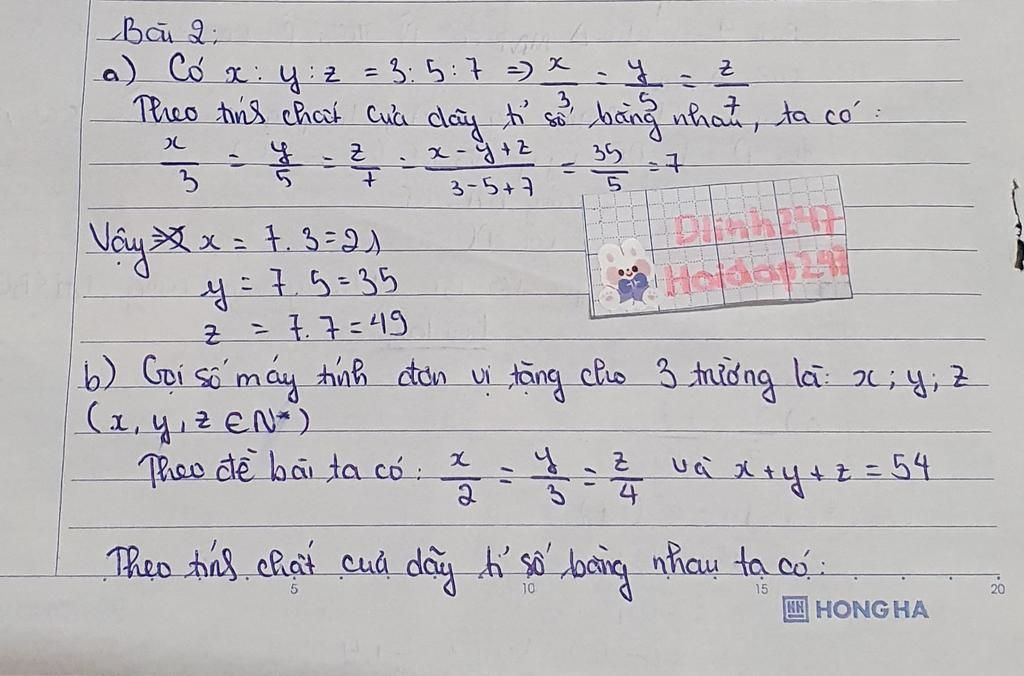 Bài 2:
a) Có x : y : z = 3 : 5 : 7 => x/3 = y/5 = z/7
Theo tính chất của dãy tỉ số bằng nhau, ta có:
x/3 = y/5 = z/7 = x - y + z / 3 - 5 + 7 = 35/5 = 7
Vậy x = 7 . 3 = 21
y = 7 . 5 = 35
z = 7 . 7 = 49
Dlinh247
Hoidap247
b) Gọi số máy tính đơn vị tặng cho 3 trường là: x; y; z
(x, y, z ∈ N*)
Theo đề bài ta có: x/2 = y/3 = z/4 và x + y + z = 54
Theo tính chất của dãy tỉ số bằng nhau ta có:
5 10 15 20
HONG HA